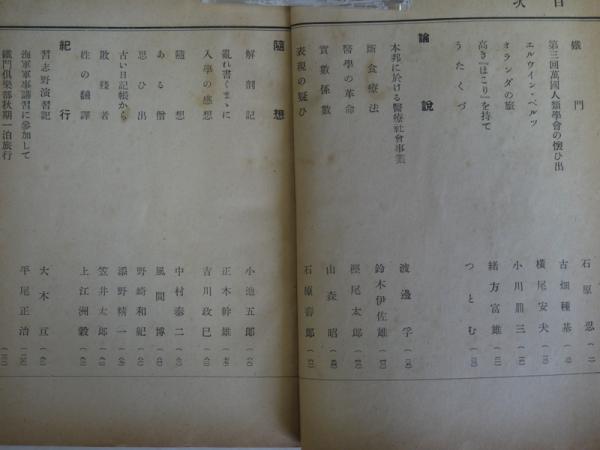 目次
鐵門 石原忍
第三回萬國人類學會の懷ひ出 古畑種基
エルウイン・ベルツ 横尾安夫
オランダの旅 小川鼎三
高き『ほこり』を持て 緒方富雄
うたくづ つとむ
論說
本邦に於ける醫療社會事業 渡邊孚
斷食療法 鈴木伊佐雄
醫學の革命 樫尾太郎
實數係數 山森昭
表現の疑ひ 石原春郎
隨想
解剖記 小池五郎
亂れ書くまゝに 正木幹雄
入學の感想 吉川政巳
隨想 中村泰二
ある僧 風間博
思ひ出 野崎和紀
古い日記帳から 添野精一
敗殘者 笠井太郎
性の飜譯 上江洲毅
紀行
習志野演習記 大木亙
海軍軍事講習に參加して 平尾正治
鐵門俱樂部秋期一泊旅行